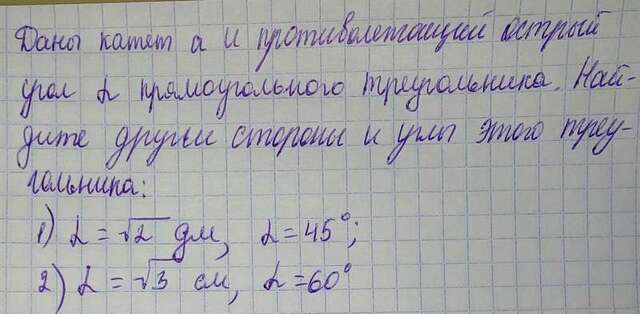 Даны катет a и противолежащий острый
угол α прямоугольного треугольника. Най-
дите другие стороны и углы этого треу-
гольника:
1) α = √2 дм, α = 45°;
2) α = √3 см, α = 60°